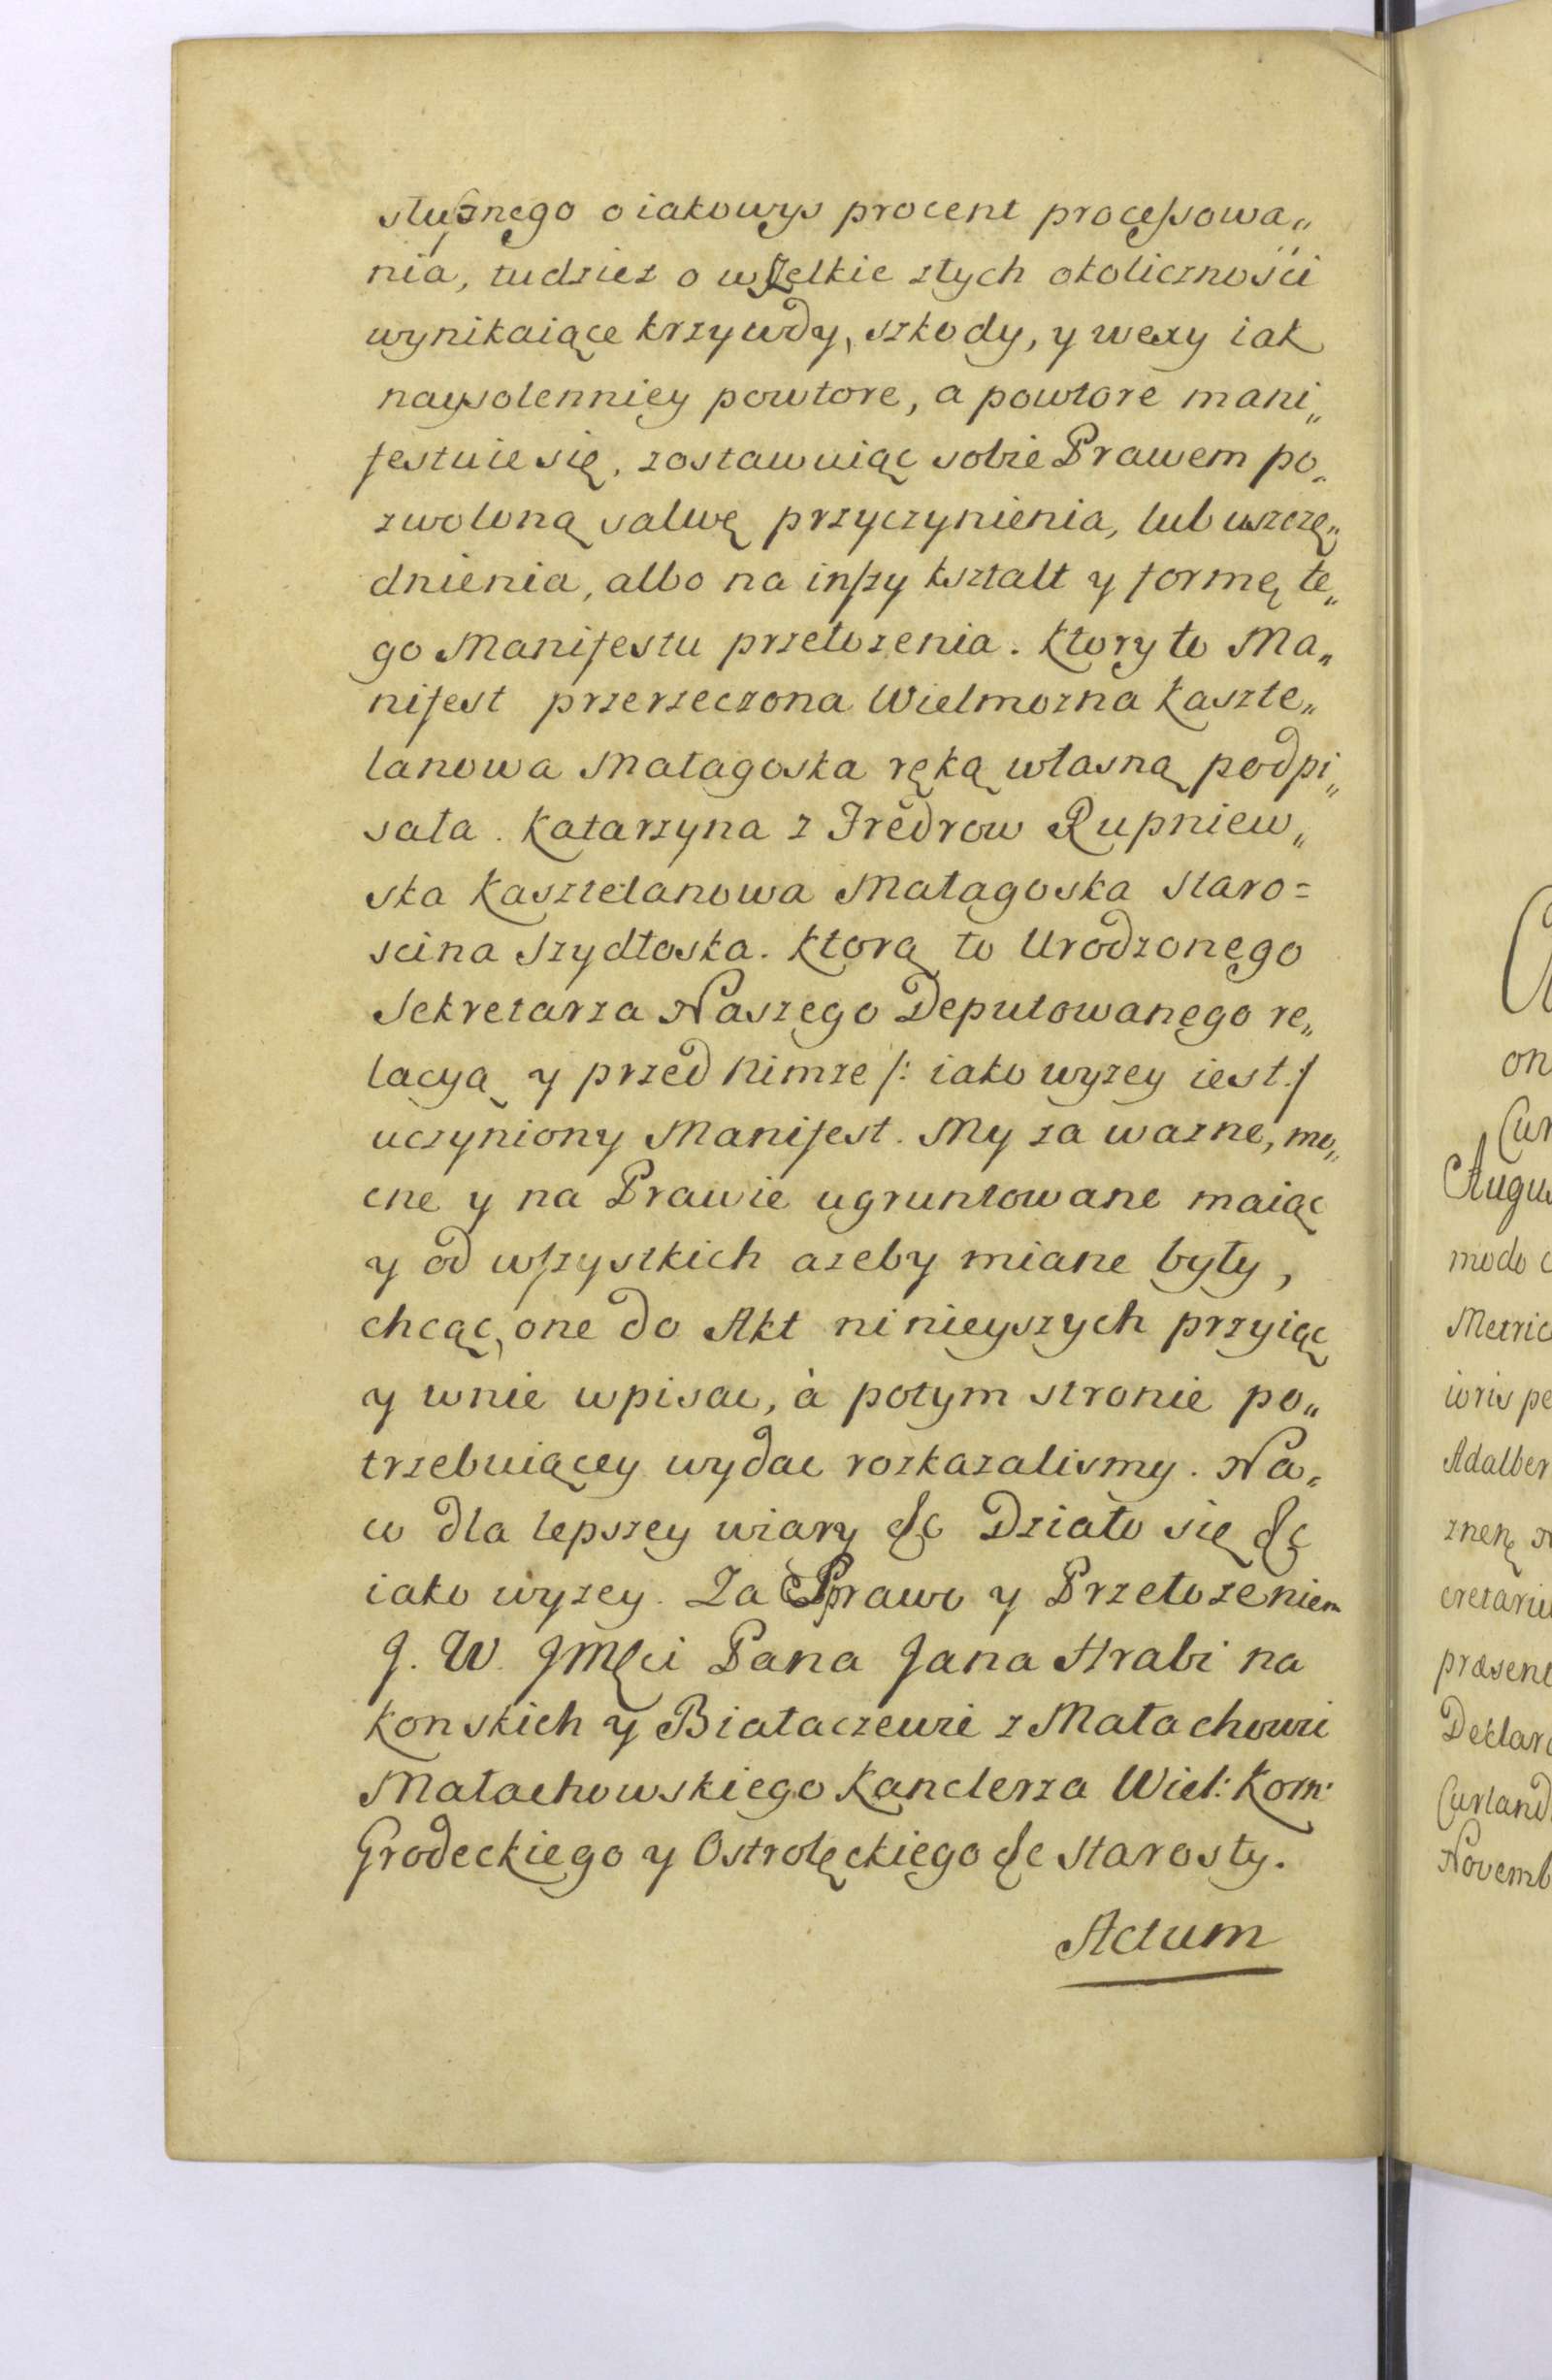 słusznego o iakowys procent processowa„
nia, tudziez o wszelkie z tych okoliczności
wynikaiące krzywdy, szkody, y wexy iak
naysolenniey powtore, a powtore mani„
festuie się, zostawuiąc sobie Prawem po„
zwoloną salwę przyczynienia, lub uszczę„
dnienia, albo na inszy kształt y formę te„
go Manifestu przełozenia. Ktory to Ma„
nifest przerzeczona Wielmozna Kaszte„
lanowa Małagoska ręką własną podpi„
sała. Katarzyna z Fredrow Rupniew„
ska Kasztelanowa Małagoska Staro=
scina Szydłoska. Ktorą to Urodzonego
Sekretarza Naszego Deputowanego re„
lacyą y przed nimze /: iako wyzey iest :/
uczyniony Manifest. My za wazne, mo„
cne y na Prawie ugruntowane maiąc
y od wszystkich azeby miane były,
chcąc, one do Akt ninieyszych przyiąc
y w nie wpisac, à potym stronie po„
trzebuiącey wydac rozkazalismy. Na„
co dla lepszey wiary &c Działo się &c
iako wyzey. Za Sprawo y Przełozeniem
J. W. JMsci Pana Jana Hrabi na
Konskich y Białaczewie z Małachowi
Małachowskiego Kanclerza Wiel: Kom:
Grodeckiego y Ostrołęckiego &c Starosty.
Actum
on
Cur
Augu
modo c
Metric
ioris pe
Adalber
znenę
cretariu
præsent
Declara
Curland
Novemb